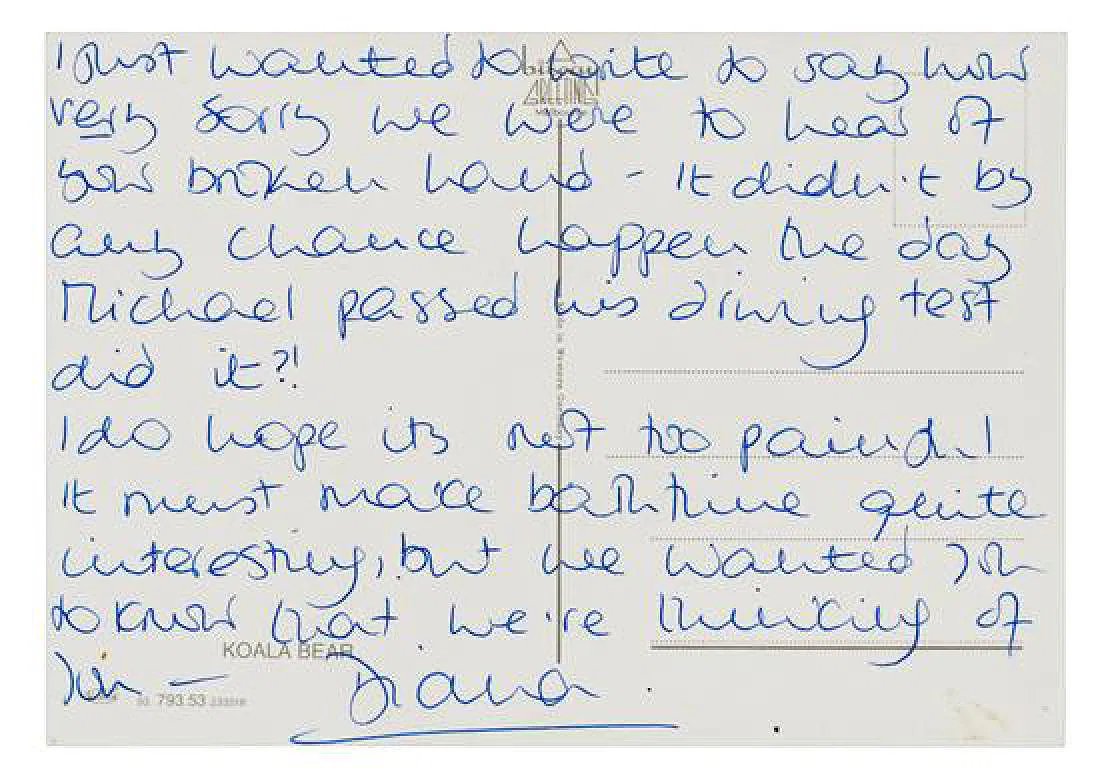 I just wanted to write to say how
very sorry we were to hear of
your broken hand - It didn't by
any chance happen the day
Michael passed his driving test
did it?!
I do hope its not too painful
It must make bathtime quite
interesting, but we wanted you
to know that we're thinking of
you - Diana
KOALA BEAR
793 53